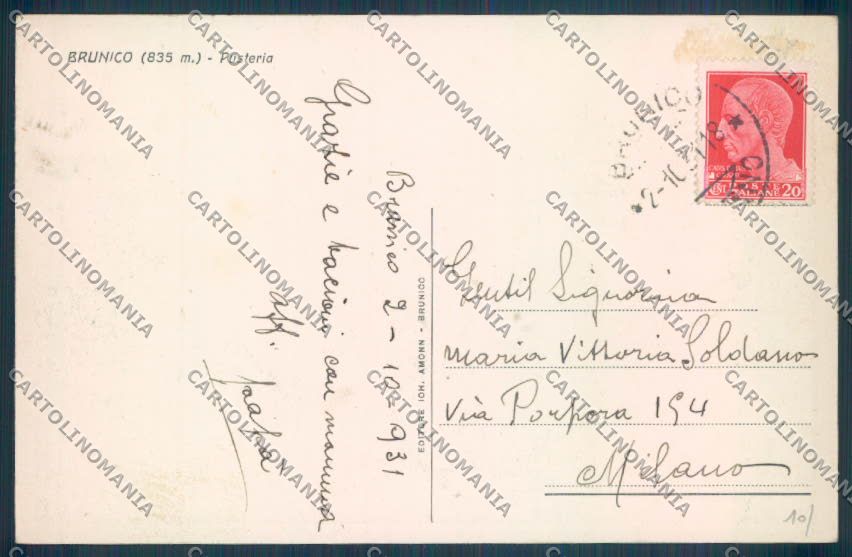 BRUNICO (835 m.) - Pusteria
Brunico 2-10-931
Grazie e bacioni con mammina
aff.
EDITORE IOH. AMONN - BRUNICO
BRUNICO
2-10
18
POSTE ITALIANE
CENT. 20
Gentil Signorina
Maria Vittoria Soldano
Via Porpora 154
Milano
10/
CARTOLINOMANIA